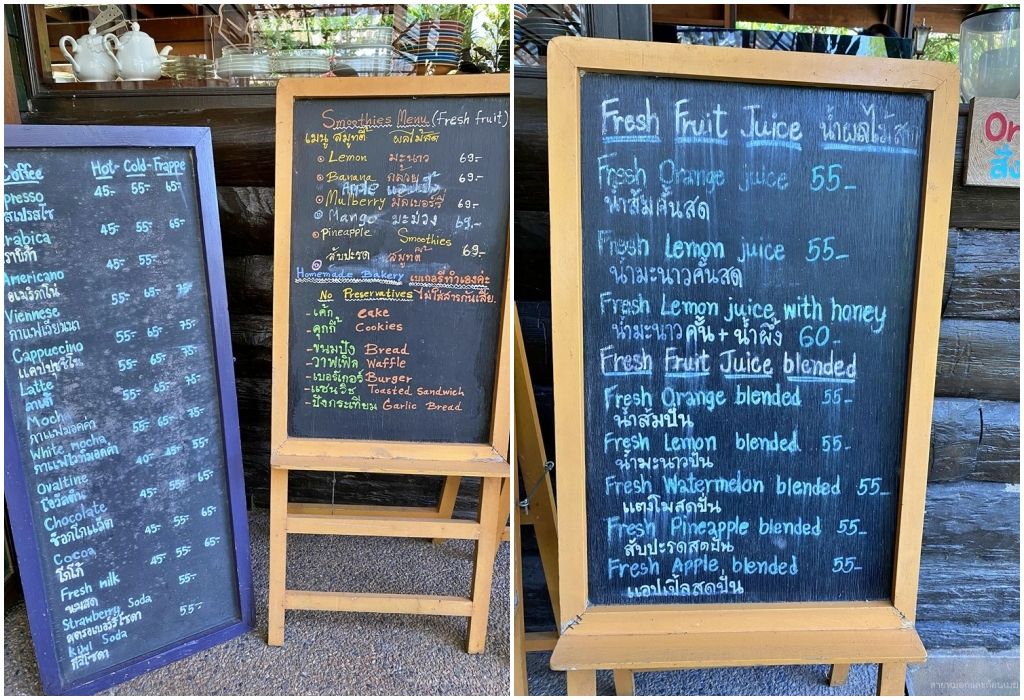 Coffee Hot- Cold- Frappe
presso 45- 55- 65-
สเปรสโซ
rabica 45- 55- 65-
ราบิก้า
Americano 45- 55-
อเมริกาโน่
Viennese 55- 65- 75-
กาแฟเวียนนา
Cappuccino 55- 65- 75-
แคปปูชิโน
Latte 55- 65- 75-
ลาเต้
Mocha 55- 65- 75-
กาแฟมอคค่า
White mocha 55- 65- 75-
กาแฟไวท์มอคค่า
Ovaltine 40- 45-
โอวัลติน
Chocolate 45- 55- 65-
ช็อกโกแล็ต
Cocoa 45- 55- 65-
โกโก้
Fresh milk 45- 55- 65-
นมสด
Strawberry Soda 55-
สตรอเบอร์รี่โซดา
Kiwi Soda 55-
กีวี่โซดา
Smoothies Menu (Fresh fruit)
เมนู สมูทตี้ ผลไม้สด
Lemon มะนาว 69.-
Banana กล้วย 69.-
Apple แอปเปิ้ล
Mulberry มัลเบอร์รี่ 69.-
Mango มะม่วง 69.-
Pineapple Smoothies
สับปะรด สมูทตี้ 69.-
Homemade Bakery เบเกอรี่ทำเองค่ะ
No Preservatives ไม่ใส่สารกันเสีย
-เค้ก cake
-คุกกี้ Cookies
-ขนมปัง Bread
-วาฟเฟิล Waffle
-เบอร์เกอร์ Burger
-แซนวิช Toasted Sandwich
-ปังกระเทียม Garlic Bread
Fresh Fruit Juice น้ำผลไม้ส
Fresh Orange juice 55.-
น้ำส้มคั้นสด
Fresh Lemon juice 55.-
น้ำมะนาวคั้นสด
Fresh Lemon juice with honey
น้ำมะนาวคั้น + น้ำผึ้ง 60.-
Fresh Fruit Juice blended
Fresh Orange blended 55.-
น้ำส้มปั่น
Fresh Lemon blended 55.-
น้ำมะนาวปั่น
Fresh Watermelon blended 55.-
แตงโมสดปั่น
Fresh Pineapple blended 55.-
สับปะรดสดปั่น
Fresh Apple blended 55.-
แอปเปิ้ลสดปั่น
Or
สั่ง